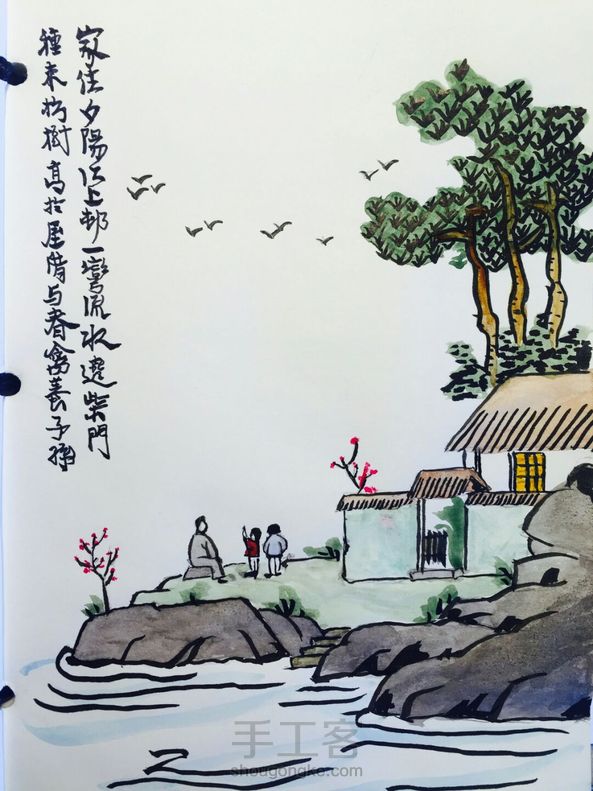 家住夕陽江上邨一彎流水遶柴門
種来松樹高於屋借与春禽養子孫
手工客
shougongke.com